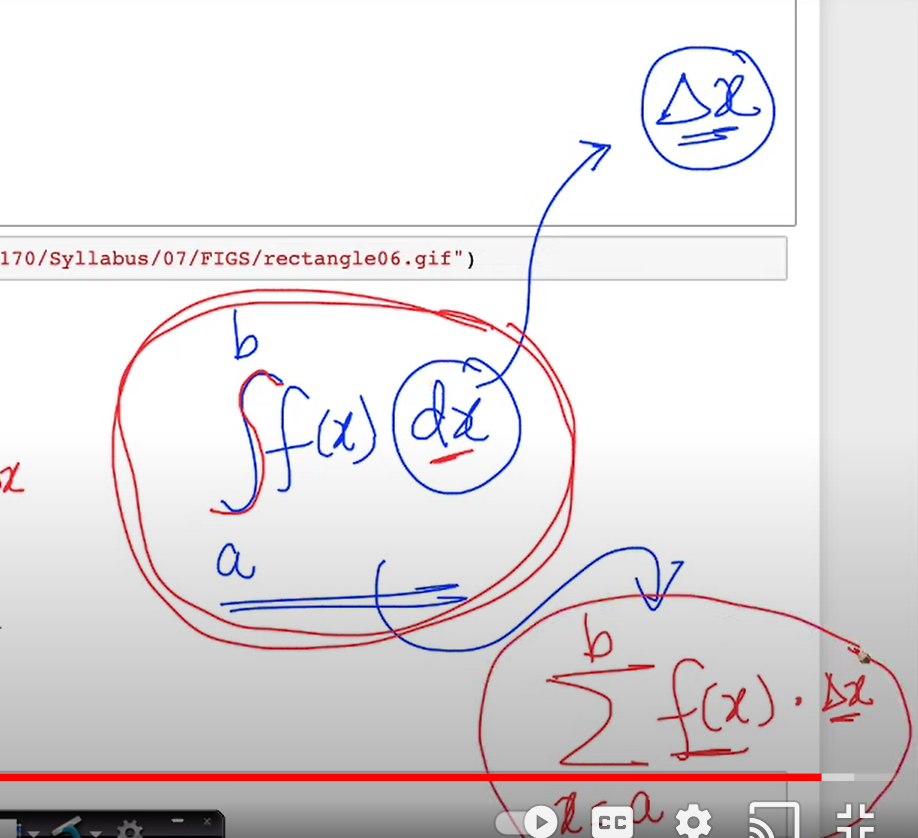 Δx
170/Syllabus/07/FIGS/rectangle06.gif")
b
∫f(x) dx
x
a
b
∑ f(x) · Δx
x = a
CC